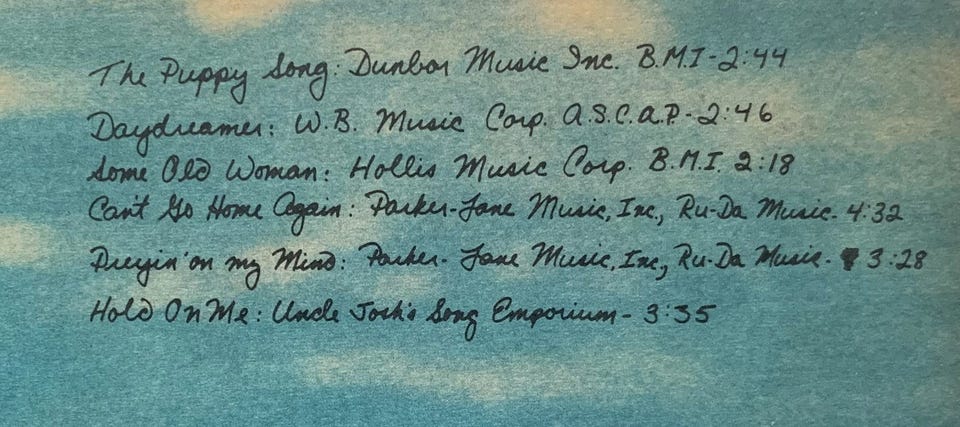 The Puppy Song: Dunbar Music Inc. B.M.I-2:44
Daydreamer: W.B. Music Corp. A.S.C.A.P.-2:46
Some Old Woman: Hollis Music Corp. B.M.I. 2:18
Can't Go Home Again: Parker-Lane Music, Inc., Ru-Da Music. 4:32
Preyin' on my Mind: Parker-Lane Music, Inc, Ru-Da Music. 3:28
Hold On Me: Uncle Josh's Song Emporium-3:35